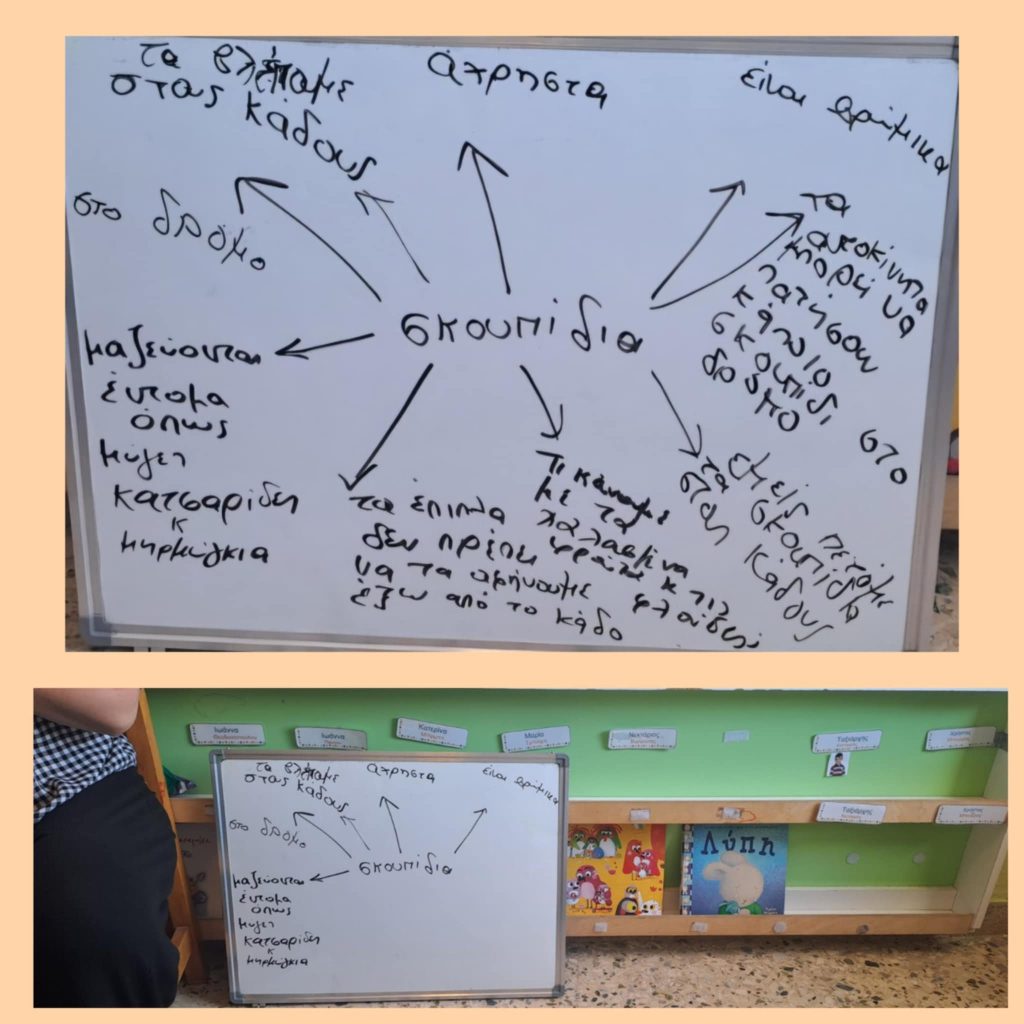 τα βλέπαμε
στους κάδους
άχρηστα
είναι βρώμικα
στο δρόμο
σκουπίδια
τα
αυτοκίνητα
μπορεί να
πατήσουν
κάποιο
σκουπίδι στο
δρόμο
μαζεύονται
έντομα
όπως
μύγες
κατσαρίδες
κ
μηρμύγκια
τα έπιπλα
δεν πρέπει
να τα αφήνουμε
έξω από το κάδο
Τι κάνουμε
με τα
χαλασμένα
φρούτα κ τις
φλούδες;
εμείς πετάμε
τα σκουπίδια
στους κάδους
Ιωάννα
Ιωάννα
Κατερίνα
Μαρία
Νεκτάριος
Ταξιάρχης
Χρήστος
τα βλέπαμε
στους κάδους
άχρηστα
είναι βρώμικα
στο δρόμο
σκουπίδια
μαζεύονται
έντομα
όπως
μύγες
κατσαρίδες
κ
μηρμύγκια
Ταξιάρχης
Χρήστος
Λύπη